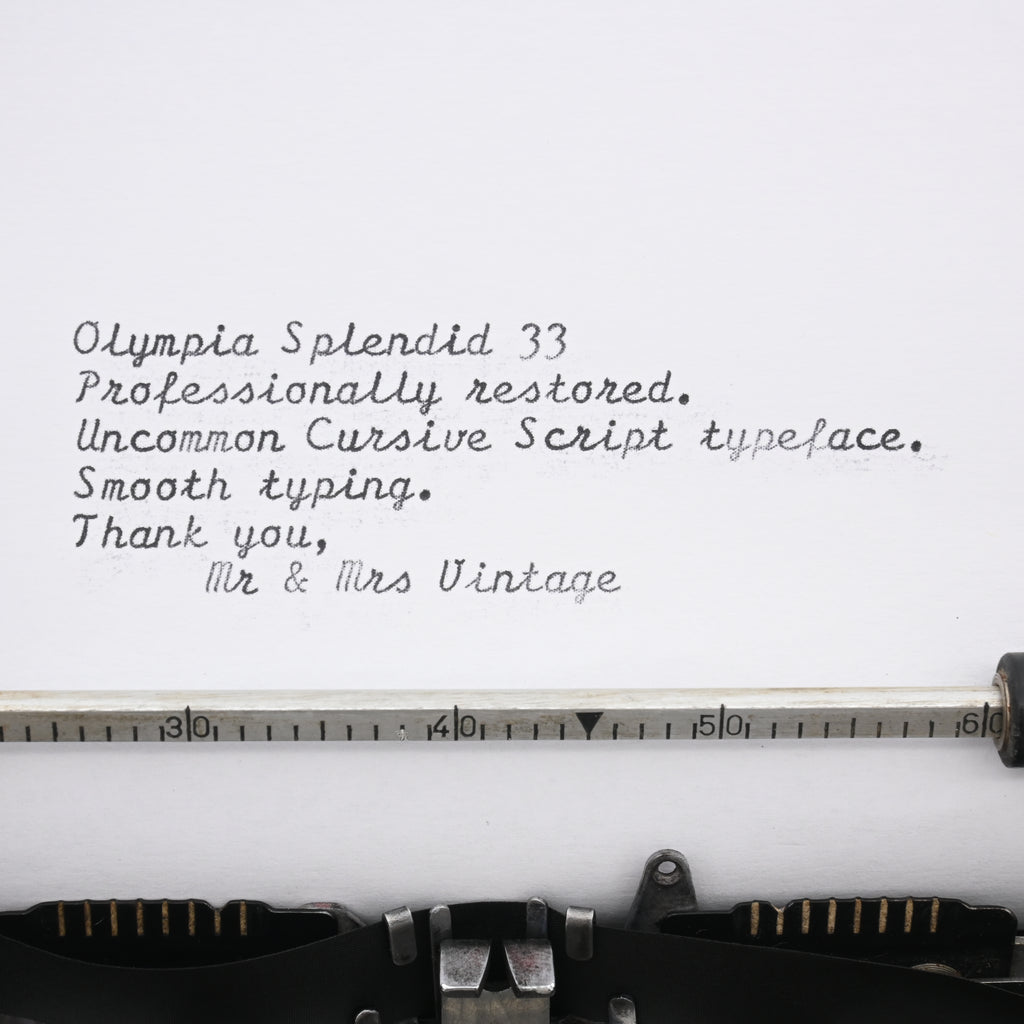 Olympia Splendid 33
Professionally restored.
Uncommon Cursive Script typeface.
Smooth typing.
Thank you,
Mr & Mrs Vintage
30 40 50 60